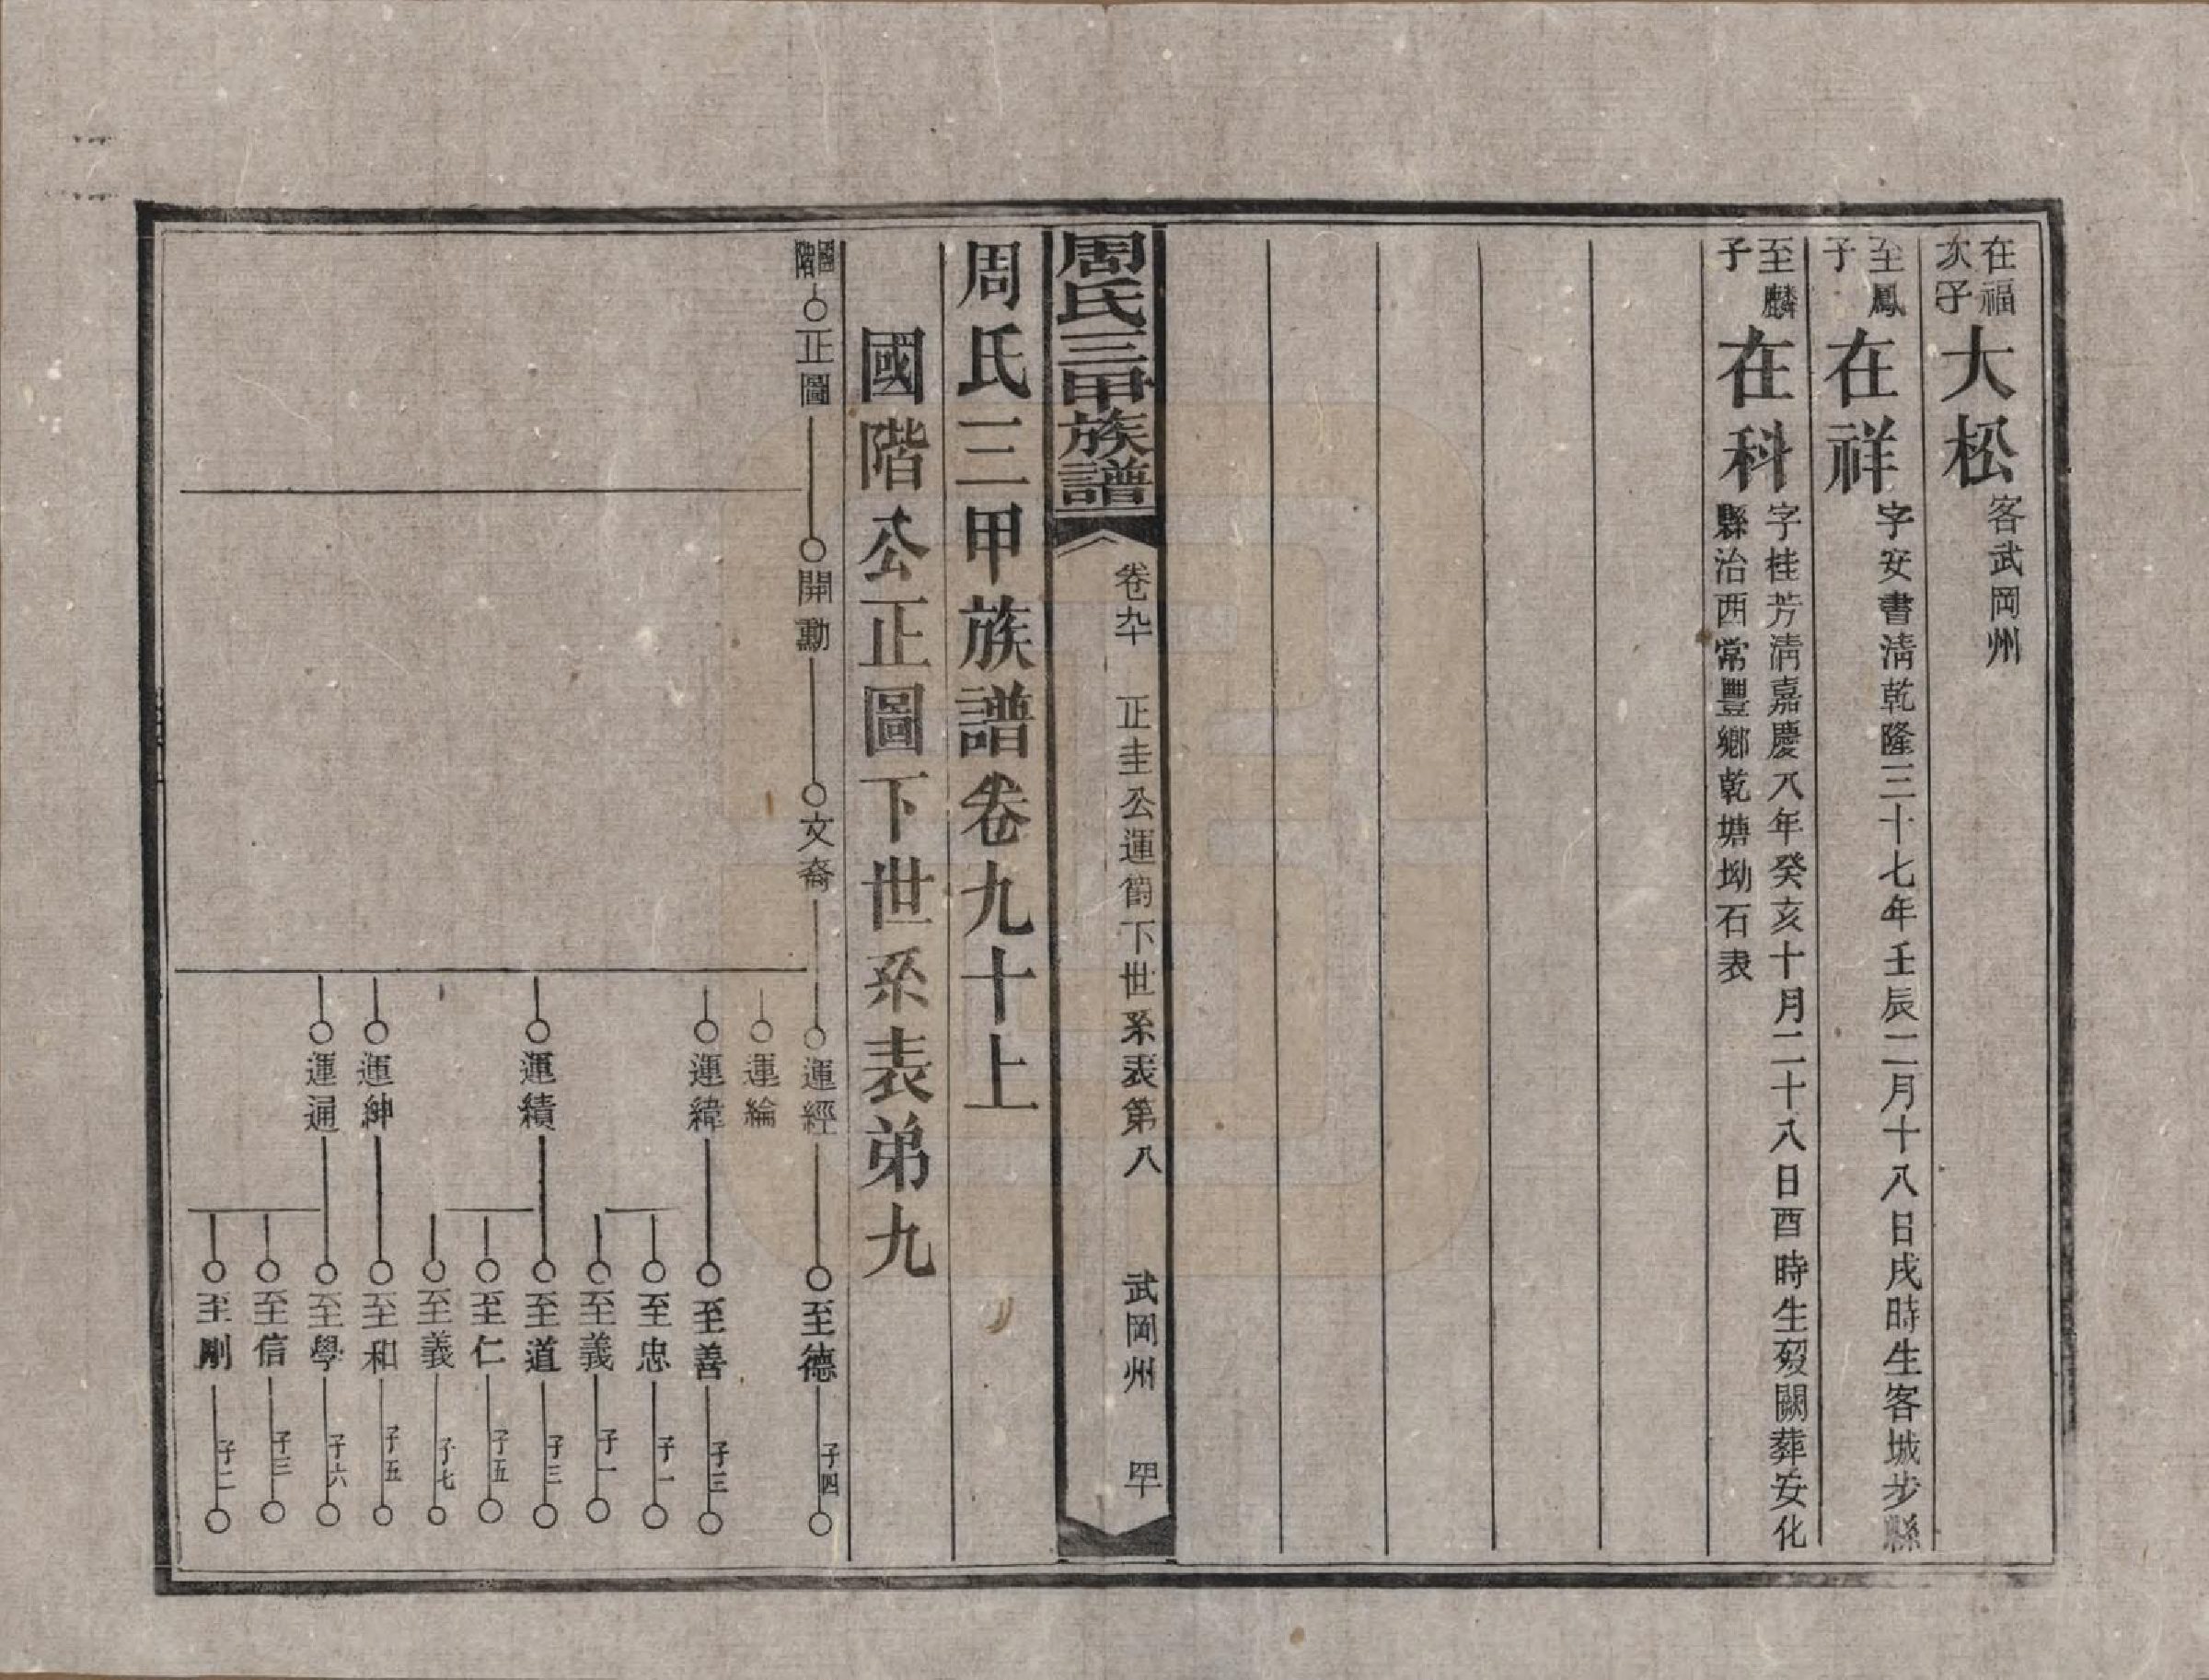 在福
次子
大松
客武岡州
至鳳
子
在祥
字安書淸乾隆三十七年壬辰二月十八日戌時生客城步縣
至麟
子
在科
字桂芳淸嘉慶八年癸亥十月二十八日酉時生歿闕葬安化
縣治西常豐鄉乾塘坳石表
周氏三甲族譜
卷九十
正圭公運籌下世系表第八
武岡州
四十
周氏三甲族譜卷九十上
國階公正圖下世系表弟九
國階
正圖
開勳
文裔
運經
至德
子四
運綸
運緯
至善
子三
至忠
子一
至義
子一
運績
至道
子三
至仁
子五
至義
子七
運紳
至和
子五
運通
至學
子六
至信
子三
至剛
子二